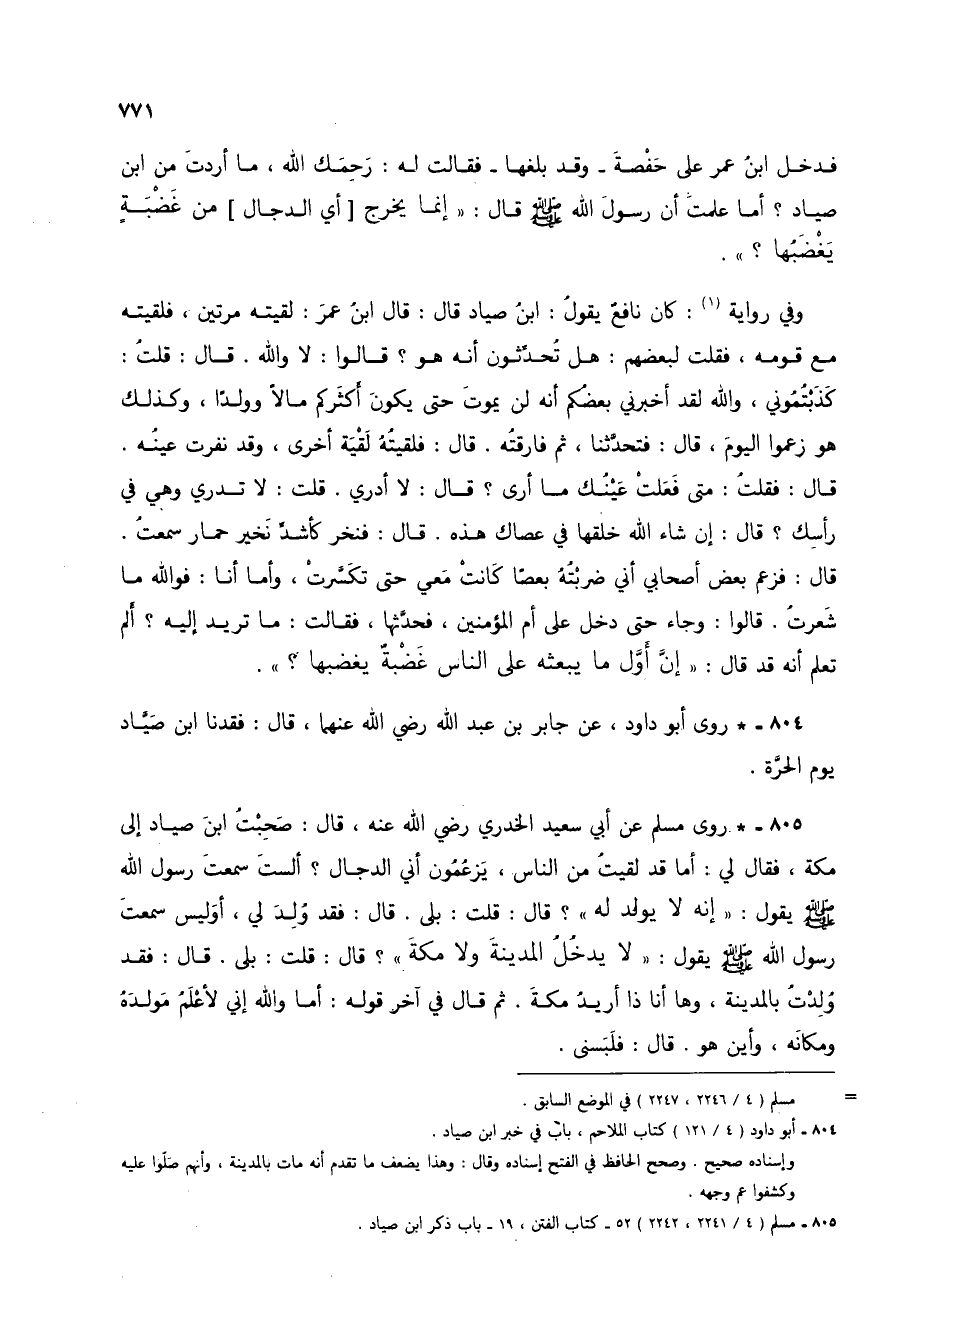 ٧٧١
فـدخـل ابنُ عمر على حَفْصةَ ـ وقـد بلغهـا ـ فقـالت لـه : رَحِمَـك الله ، مـا أردتَ من ابن
صيـاد ؟ أمـا علمتَ أن رسـولَ الله ﷺ قـال : « إنمـا يخرج [ أي الـدجـال ] من غَضْبَـةٍ
يَغْضَبُها ؟ » .
وفي رواية (١) : كان نافعٌ يقولُ : ابنُ صياد قال : قال ابنُ عمرَ : لقيتـه مرتين ، فلقيتـه
مـع قـومـه ، فقلت لبعضهم : هـل تُحدِّثـون أنـه هـو ؟ قـالـوا : لا والله . قـال : قلتُ :
كَذَبْتُمُوني ، والله لقد أخبرني بعضُكم أنه لن يموتَ حتى يكونَ أكثَركم مـالاً وولـدًا ، وكـذلـك
هو زعموا اليومَ ، قال : فتحدَّثنا ، ثم فارقتُه . قال : فلقيتُهُ لَقْيَة أخرى ، وقد نفرت عينُـه .
قـال : فقلتُ : متى فَعَلتْ عَيْنُـك مـا أرى ؟ قـال : لا أدري . قلت : لا تـدري وهي في
رأسِك ؟ قال : إن شاء الله خلقها في عصاك هـذه . قـال : فنخر كأشـدِّ نَخير حمـار سمعتُ .
قال : فزعم بعض أصحابي أني ضربْتُهُ بعصًا كَانتْ مَعي حتى تكسَّرتْ ، وأمـا أنـا : فوالله مـا
شَعرتُ . قالوا : وجاء حتى دخل على أم المؤمنين ، فحدَّثها ، فقـالت : مـا تريـد إليـه ؟ أَلم
تعلم أنه قد قال : « إنَّ أَوَّل ما يبعثه على الناس غَضْبةٌ يغضبها ؟ » .
٨٠٤ ـ * روى أبو داود ، عن جابر بن عبد الله رضي الله عنهما ، قال : فقدنا ابن صَيَّـاد
يوم الحَرَّة .
٨٠٥ ـ * روى مسلم عن أبي سعيد الخدري رضي الله عنه ، قال : صَحِبْتُ ابنَ صيـاد إلى
مكة ، فقال لي : أما قد لقيتُ من الناس ، يَزعُمُون أني الدجـال ؟ ألستَ سمعتَ رسول الله
ﷺ يقول : « إنه لا يولد له » ؟ قال : قلت : بلى . قال : فقد وُلِـدَ لي ، أوَليس سمعتَ
رسول الله ﷺ يقول : « لا يدخُلُ المدينةَ ولا مكةَ » ؟ قال : قلت : بلى . قـال : فقـد
وُلِدْتُ بالمدينة ، وها أنا ذا أريـدُ مكـةَ . ثم قـال في آخر قولـه : أمـا والله إني لأعْلَمُ مَولـدَهُ
ومكانَه ، وأين هو . قال : فلَبَسني .
= مسلم ( ٤ / ٢٢٤٦ ، ٢٢٤٧ ) في الموضع السابق .
٨٠٤ ـ أبو داود ( ٤ / ١٢١ ) كتاب الملاحم ، بابٌ في خبر ابن صياد .
وإسناده صحيح . وصحح الحافظ في الفتح إسناده وقال : وهذا يضعف ما تقدم أنه مات بالمدينة ، وأنهم صَلّوا عليه
وكشفوا عم وجهه .
٨٠٥ ـ مسلم ( ٤ / ٢٢٤١ ، ٢٢٤٢ ) ٥٢ ـ كتاب الفتن ، ١٩ ـ باب ذكر ابن صياد .